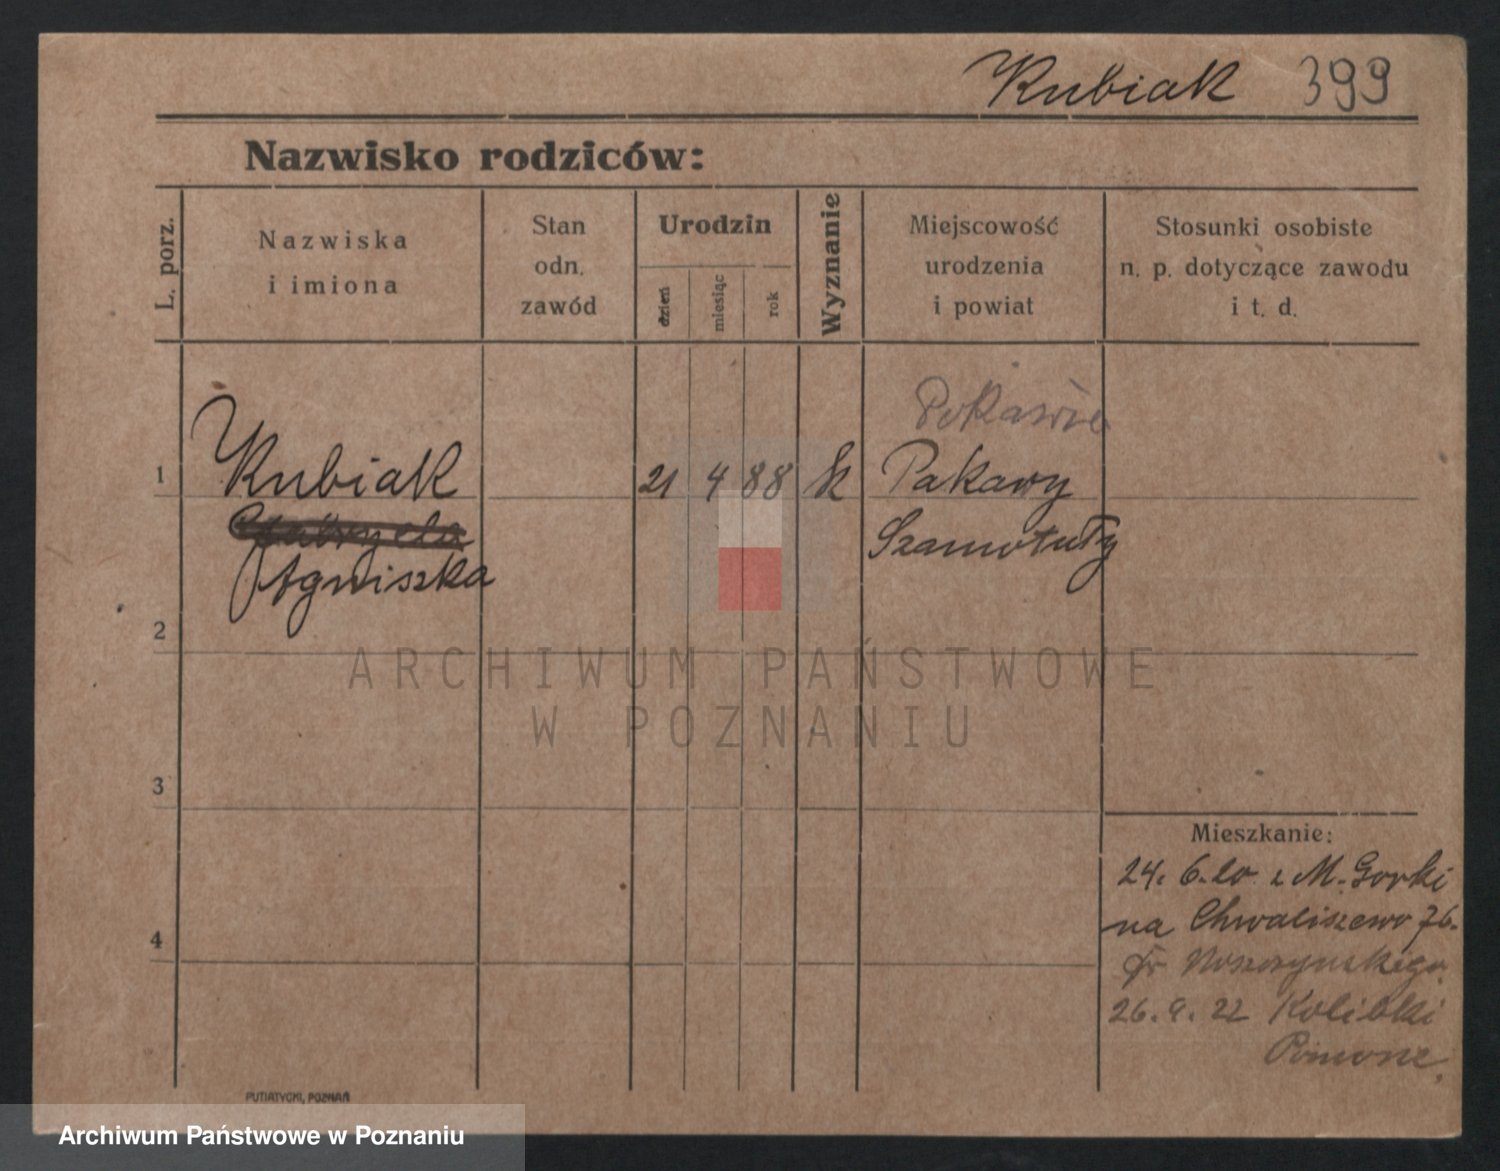 Kubiak 399
Nazwisko rodziców:
L. porz.
Nazwiska
i imiona
Stan
odn.
zawód
Urodzin
dzień
miesiąc
rok
Wyznanie
Miejscowość
urodzenia
i powiat
Stosunki osobiste
n. p. dotyczące zawodu
i t. d.
1
Kubiak
21 4 88 k
Pakawy
Szamotuły
Agniszka
2
ARCHIWUM PAŃSTWOWE
W POZNANIU
3
Mieszkanie:
24. 6. 20 z M. Gorki
na Chwaliszewo 76.
4
26. 9. 22 Kolibki
PUTIATYCKI, POZNAŃ
Archiwum Państwowe w Poznaniu